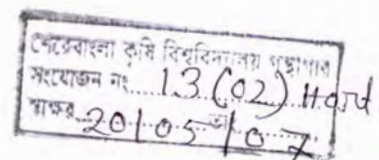 শেরেবাংলা কৃষি বিশ্ববিদ্যালয় গন্থাগার
সংযোজন নং 13 (02) Hord
স্বাক্ষর 20/05/07